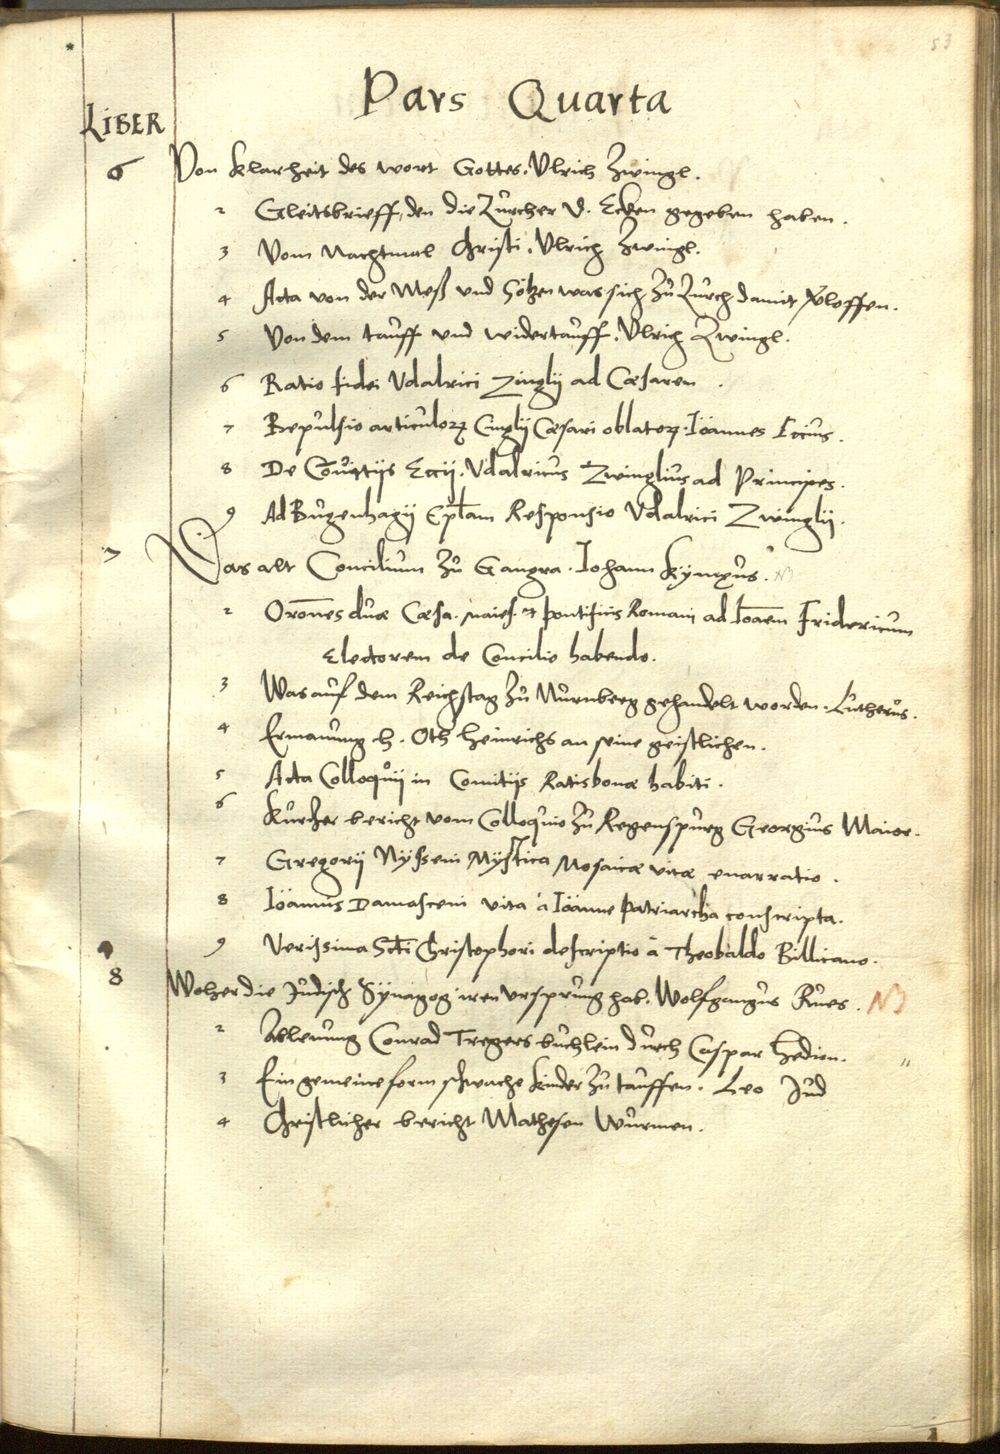 53
Pars Quarta
LIBER
6 Von klarheit des wort Gottes. Ulrich Zwingl.
2 Gleitsbrieff, den die Zürcher D. Ecken gegeben haben.
3 Vom Nachtmal Christi. Ulrich Zwingl.
4 Acta von der Meß und Götzen was sich zů Zürch damit verloffen.
5 Von dem tauff und widertauff. Ulrich Zwingl.
6 Ratio fidei Udalrici Zinglij ad Cæsarem.
7 Repulsio articulorꝝ Cinglij Cæsari oblatorꝝ. Ioannes Eccius.
8 De Convitijs Eccij. Udalricus Zwinglius ad Principes.
9 Ad Bugenhagij Ep̃lam Responsio Udalrici Zwinglij.
7 Das alt Concilium zů Gangra. Iohann Kymeus. NB
2 Orõnes duæ Cæsa. maies. et pontificis Romani ad Ioãem Fridericum
Electorem de Concilio habendo.
3 Was auf dem Reichstag zů Nurnberg gehandelt worden. Lutherus.
4 Ermanung h. Oth Heinrichs an seine geistlichen.
5 Acta Colloquij in Comitijs Ratisbonæ habiti.
6 Kurtzer bericht vom Colloquio zů Regenspurg Georgius Maior.
7 Gregorij Nysseni Mystica Mosaicæ vitæ enarratio.
8 Ioannis Damasceni vita à Ioanne Patriarcha conscripta.
9 Verissima Scti Christophori descriptio à Theobaldo Billicano.
8 Woher die Jüdisch Synagog iren ursprung hab. Wolfgangus Rues. NB
2 Ableinung Conrad Tregers buchlein durch Caspar Hedion.
3 Ein gemeine form schwache kinder zů tauffen. Leo Jud
4 Christlicher bericht Mathesen Wurmen.